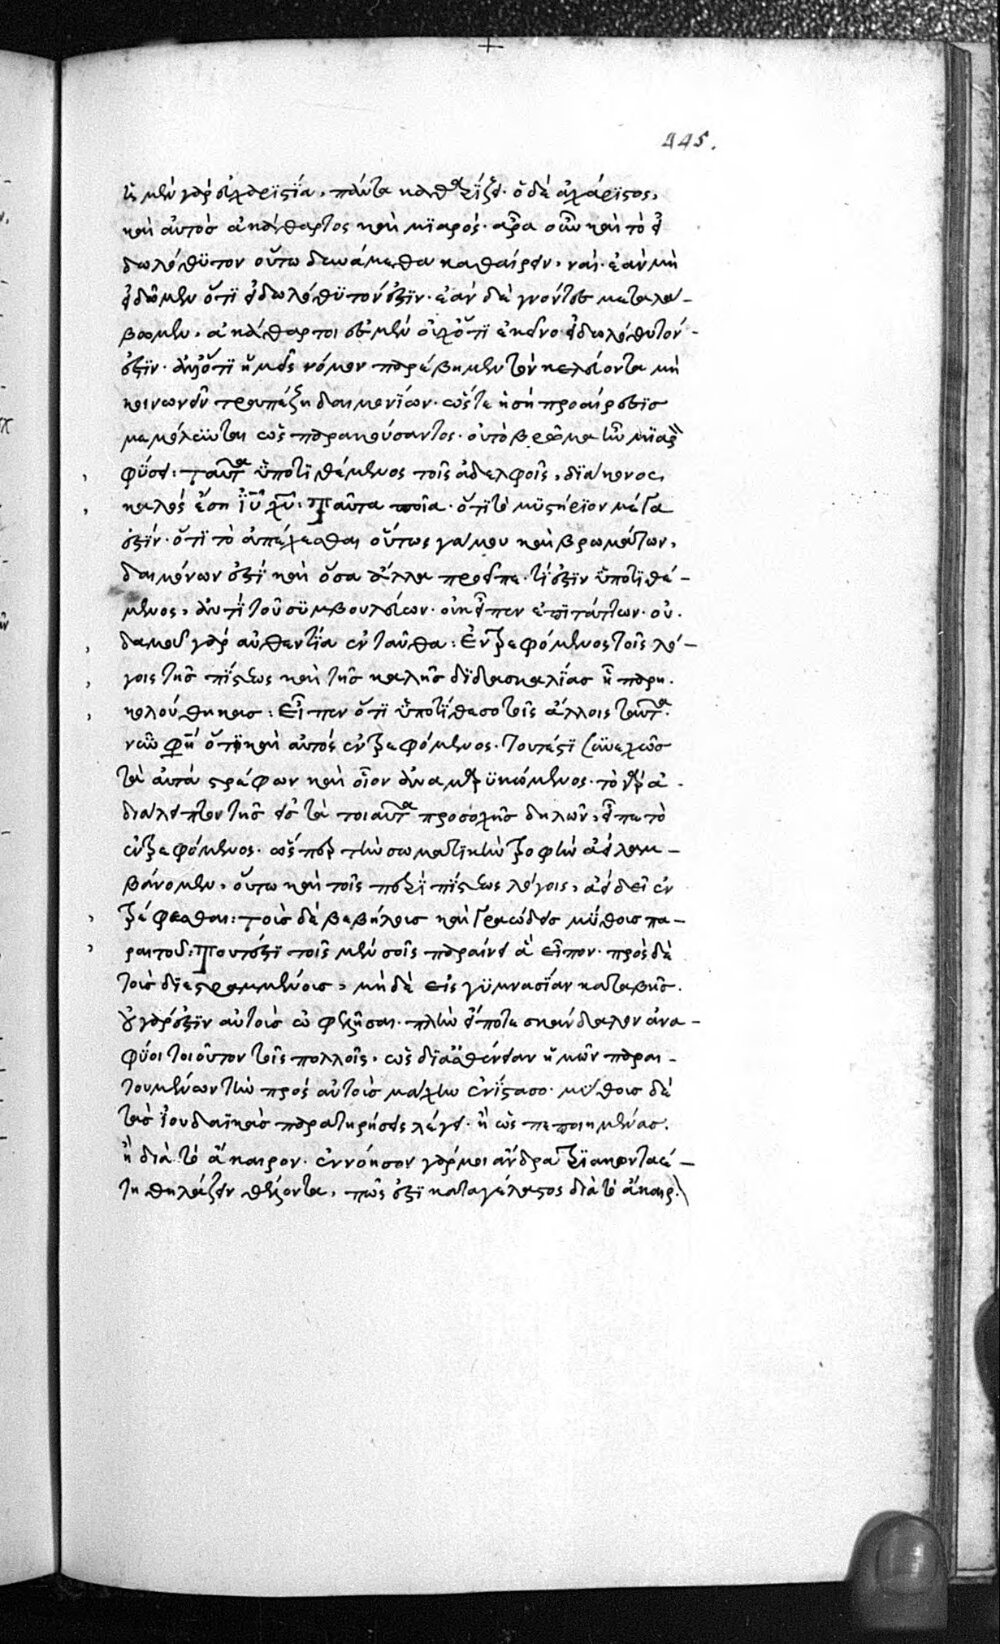 445.
ἡ μὲν γὰρ εὐχαριστία, πάντα καθαρίζει· ὁ δὲ ἀχάριστος,
καὶ αὐτὸς ἀκάθαρτος καὶ μιαρός· ἆρα οὖν καὶ τὸ εἰ
δωλόθυτον οὕτω δυνάμεθα καθαίρειν, ναί· ἐὰν μὴ
εἰδῶμεν ὅτι εἰδωλόθυτόν ἐστιν· ἐὰν δὲ γνόντες μεταλά-
βωμεν, ἀκάθαρτοι ἐσμὲν οὐχ ὅτι ἐκεῖνο εἰδωλόθυτόν
ἐστιν· ἀλλ' ὅτι ἡμεῖς νόμον παρέβημεν τὸν κελεύοντα μὴ
κοινωνεῖν τραπέζῃ δαιμονίων· ὥστε ἡ σὴ προαίρεσις
μεμόλυνται ὡς παρακούσαντος· οὐ τὸ βρῶμα τῶν μιαρῶν
φύσει: ταῦτα ὑποτιθέμενος τοῖς ἀδελφοῖς, διάκονος
καλὸς ἔσῃ ἰυ χυ: Ταῦτα ποῖα· ὅτι τὸ μυστήριον μέγα
ἐστίν· ὅτι τὸ ἀπέχεσθαι οὕτως γάμου καὶ βρωμάτων,
δαιμόνων ἐστὶ καὶ ὅσα ἄλλα προεῖπε· τί ἐστιν ὑποτιθέ-
μενος, ἀντὶ τοῦ συμβουλεύων· οὐκ εἶπεν ἐπιτάττων· οὐ
δαμοῦ γὰρ αὐθεντία ἐνταῦθα: Ἐντρεφόμενος τοῖς λό-
γοις τῆς πίστεως καὶ τῆς καλῆς διδασκαλίας ᾗ παρη
κολούθηκας: Εἶπεν ὅτι ὑποτίθεσο τοῖς ἄλλοις ταῦτα·
νῦν φη ὅτι καὶ αὐτὸς ἐντρεφόμενος· Τουτέστι συνεχῶς
τὰ αὐτὰ στρέφων καὶ οἷον ἀναμηρυκώμενος· τὸ γὰρ ἀ
διάλειπτον τῆς εἰς τὰ τοιαῦτα προσοχῆς δηλῶν, εἶπε τὸ
ἐντρεφόμενος· ὥσπερ τὴν σωματικὴν τροφὴν ἀεὶ λαμ-
βάνομεν, οὕτω καὶ τοῖς περὶ πίστεως λόγοις, ἀεὶ δεῖ ἐν
τρέφεσθαι: τοὺς δὲ βεβήλους καὶ γραώδεις μύθους πα-
ραιτοῦ: Τουτέστι τοῖς μὲν σοῖς παραίνει ἃ εἶπον· πρὸς δὲ
τοὺς διεστραμμένους, μηδὲ εἰς γυμνασίαν καταβῇς·
οὐ γάρ ἐστιν αὐτοὺς ὠφελῆσαι· πλὴν εἴ ποτε σκάνδαλον ἀνα-
φύοι τοιοῦτον τοῖς πολλοῖς, ὡς δι' ἀσθένειαν ἡμῶν παραι-
τουμένων τὴν πρὸς αὐτοὺς μάχην ἐνίστασο· μύθους δὲ
τὰς ἰουδαϊκὰς παρατηρήσεις λέγει· ἢ ὡς πεποιημένας·
ἢ διὰ τὸ ἄκαιρον· ἐννόησον γάρ μοι ἄνδρα τριακονταέ-
τη θηλάζειν θέλοντα, πῶς ἐστι καταγέλαστος διὰ τὸ ἄκαιρον